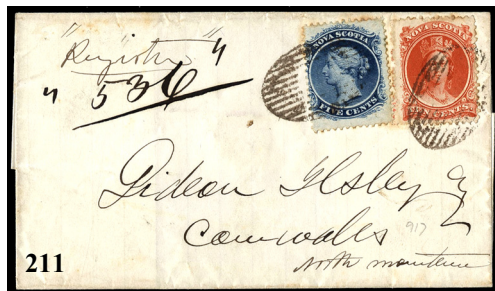 "Register"
" 536 "
NOVA SCOTIA
FIVE CENTS
NOVA SCOTIA
TEN CENTS
Gideon Ilsley Esq
Cornwallis
917
North mountain
211